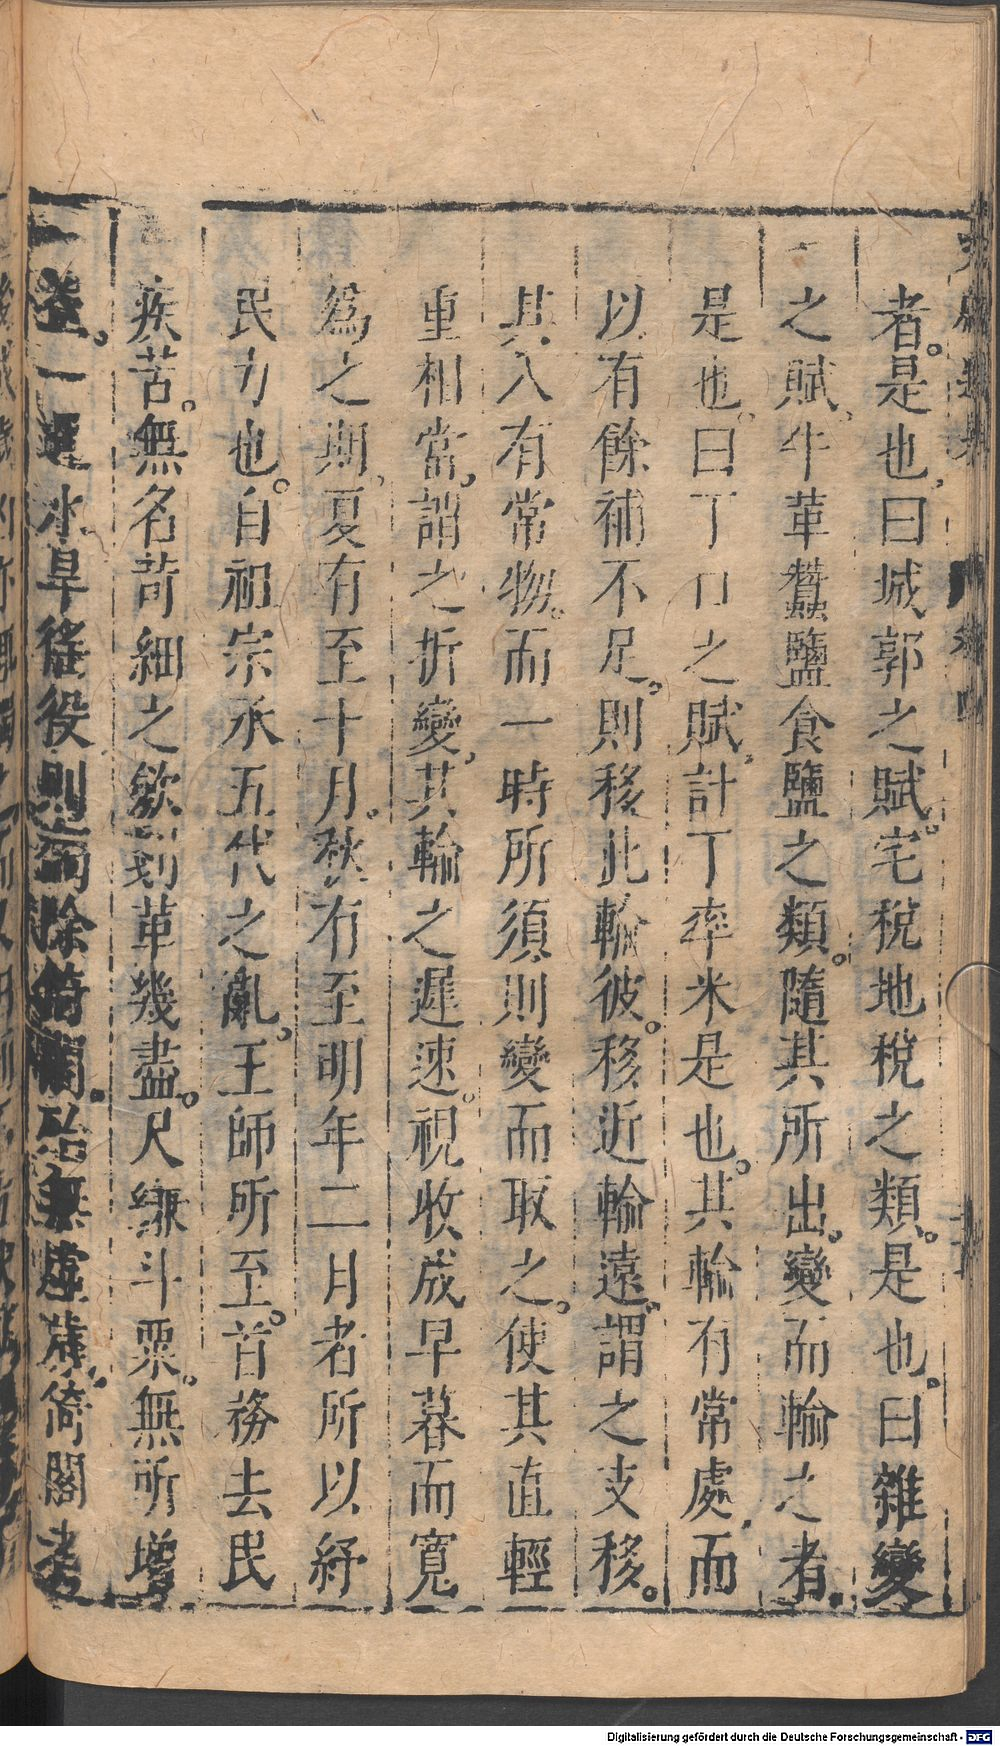 者是也曰城郭之賦宅稅地稅之類是也曰雜變
之賦牛革蠶鹽食鹽之類隨其所出變而輸之者
是也曰丁口之賦計丁率米是也其輸有常處而
以有餘補不足則移此輸彼移近輸遠謂之支移
其入有常物而一時所須則變而取之使其直輕
重相當謂之折變其輸之遲速視收成早暮而寬
爲之期夏有至十月秋有至明年二月者所以紓
民力也自祖宗承五代之亂王師所至首務去民
疾苦無名苛細之斂剗革幾盡尺縑斗粟無所增
益一遇水旱徭役則蠲除倚閣殆無虛歲倚閣者
Digitalisierung gefördert durch die Deutsche Forschungsgemeinschaft - DFG